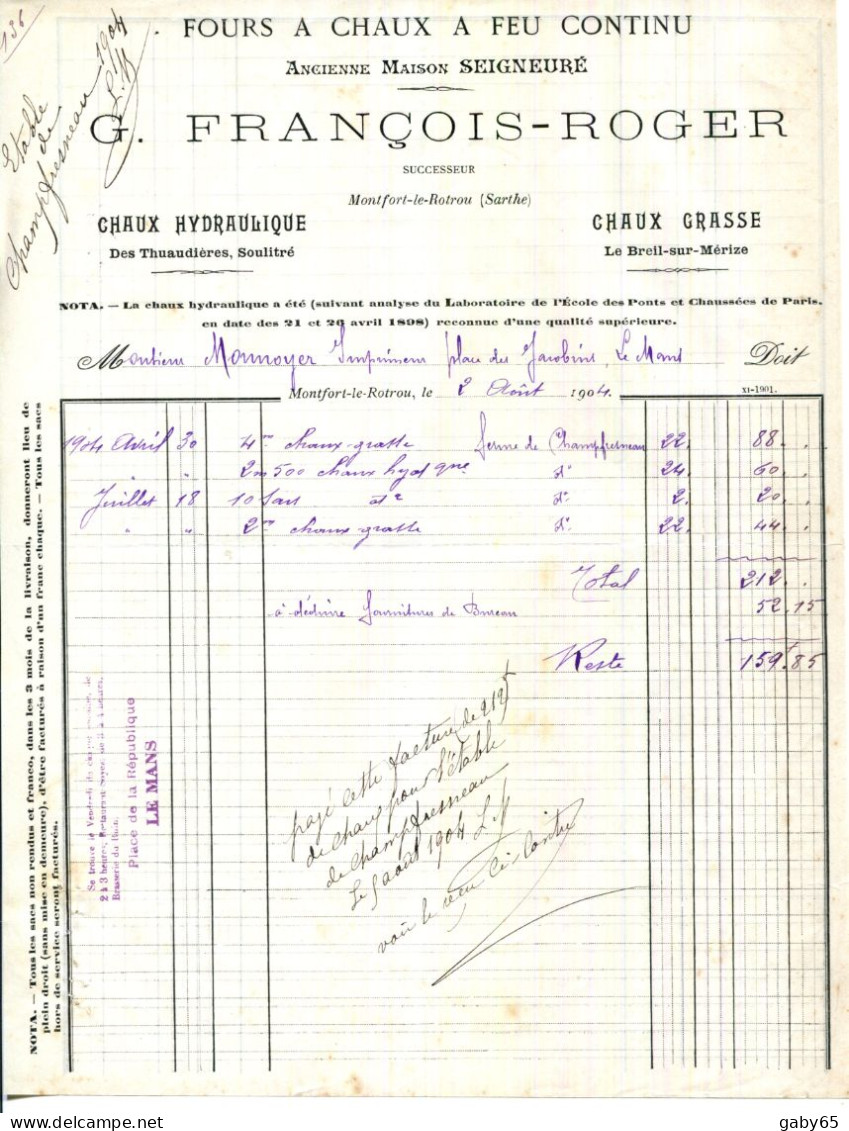 136
Etable
de
Champfresneau 1904
L. M
FOURS A CHAUX A FEU CONTINU
ANCIENNE MAISON SEIGNEURÉ
G. FRANÇOIS-ROGER
SUCCESSEUR
Montfort-le-Rotrou (Sarthe)
CHAUX HYDRAULIQUE
Des Thuaudières, Soulitré
CHAUX GRASSE
Le Breil-sur-Mérize
NOTA. — La chaux hydraulique a été (suivant analyse du Laboratoire de l'École des Ponts et Chaussées de Paris.
en date des 21 et 26 avril 1898) reconnue d'une qualité supérieure.
Monsieur Monnoyer Imprimeur place des Jacobins, Le Mans Doit
Montfort-le-Rotrou, le 2 Août 1904. XI-1901.
1904 Avril 30 4m chaux-grasse ferme de Champfresneau 22. 88 . .
" " 2m500 chaux hydque do 24. 60 . .
Juillet 18 10 Sacs do 2. 20 . .
" " 2m chaux-grasse do 22. 44 . .
Total 212 . .
à déduire fournitures de Bureau 52.15
Reste 159f.85
payé cette facture de 212f
de chaux pour l'étable
de Champfresneau
Le 5 aout 1904 L. M
voir le reçu ci-contre
Se trouve le Vendredi de chaque semaine, de
2 à 3 heures,
Brasserie du Rhin.
Place de la République
LE MANS
NOTA. — Tous les sacs non rendus et franco, dans les 3 mois de la livraison, donneront lieu de
plein droit (sans mise en demeure), d'être facturés à raison d'un franc chaque. — Tous les sacs
hors de service seront facturés.
gaby65